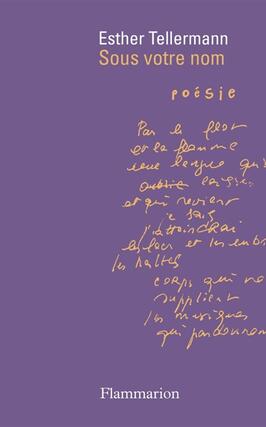 Esther Tellermann
Sous votre nom
poésie
Par le flot
et la flamme
une langue qui
et qui revient
je sais
j'attendrai
les lacs et les
les haltes
corps qui
supplient
les musiques
qui pardonnent
Flammarion